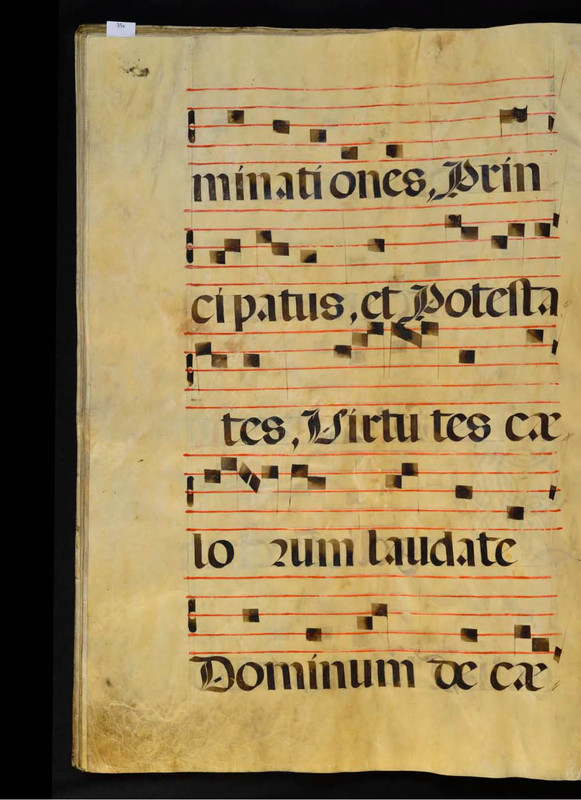 minationes, Prin
cipatus, et Potesta
tes, Virtutes cæ
lo rum laudate
Dominum de cæ